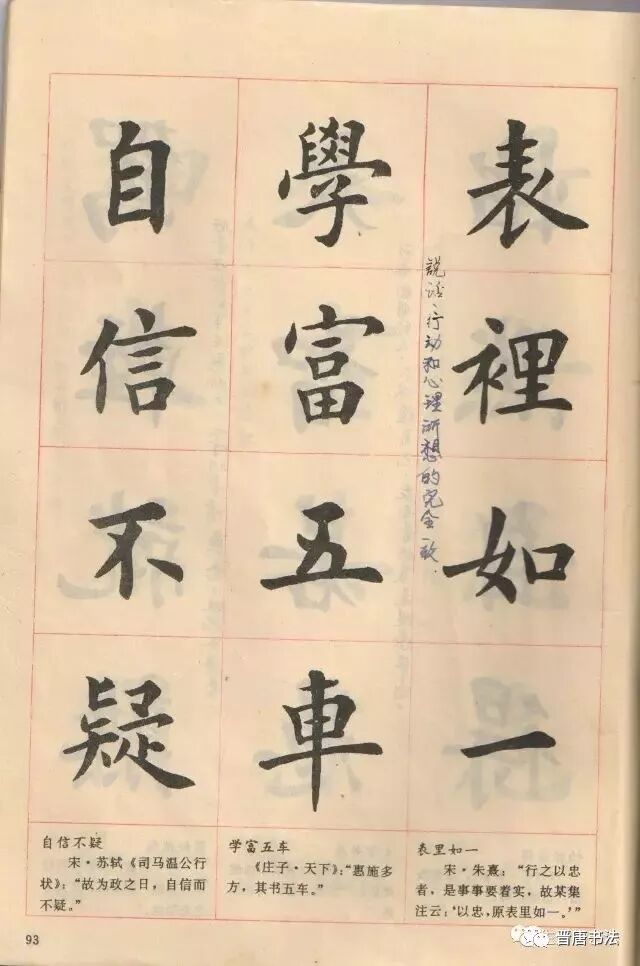 表裡如一
説话、行动和心理所想的完全一致.
學富五車
自信不疑
表里如一
宋·朱熹：“行之以忠
者，是事事要着实，故某集
注云：‘以忠，原表里如一。’”
学富五车
《庄子·天下》：“惠施多
方，其书五车。”
自信不疑
宋·苏轼《司马温公行
状》：“故为政之日，自信而
不疑。”
93
晋唐书法